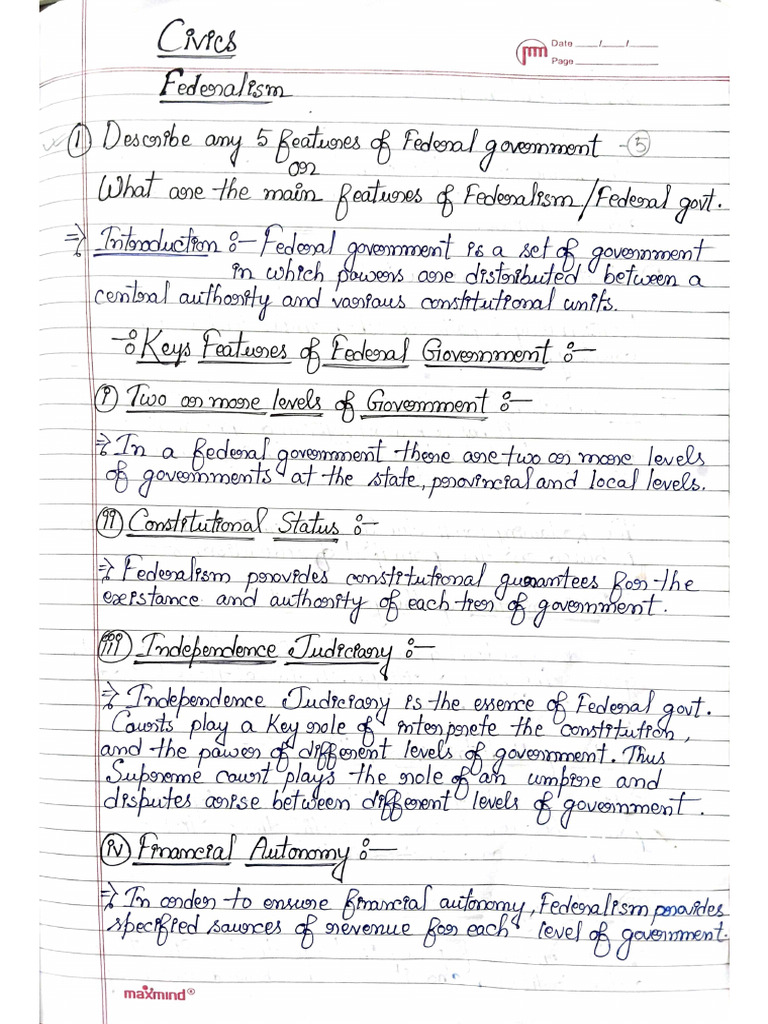 Civics
Date ___/___/___
Page ______
Federalism
① Describe any 5 features of Federal government - ⑤
or
What are the main features of Federalism/Federal govt.
⇒ Introduction :- Federal government is a set of government
in which powers are distributed between a
central authority and various constitutional units.
-: Keys Features of Federal Government :-
(i) Two or more levels of Government :-
⇒ In a federal government there are two or more levels
of governments at the state, provincial and local levels.
(ii) Constitutional Status :-
⇒ Federalism provides constitutional guarantees for the
existance and authority of each tier of government.
(iii) Independence Judiciary :-
⇒ Independence Judiciary is the essence of Federal govt.
Courts play a key role of interprete the constitution,
and the power of different levels of government. Thus
Supreme court plays the role of an umpire and
disputes arise between different levels of government.
(iv) Financial Autonomy :-
⇒ In order to ensure financial autonomy, Federalism provides
specified sources of revenue for each level of government.
maxmind®